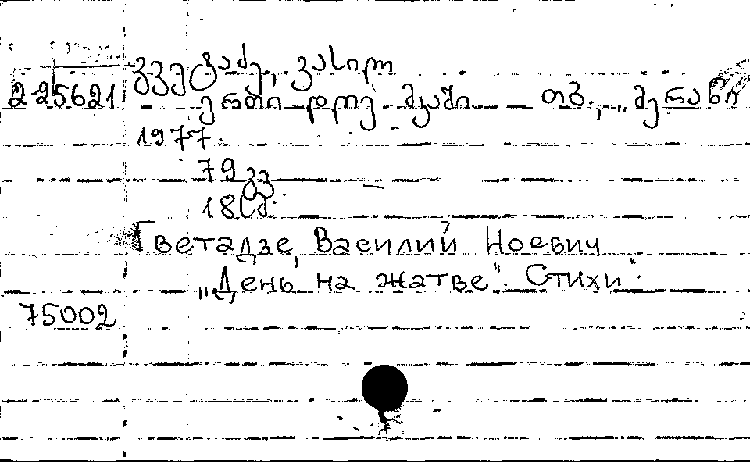 გვეტაძე, ვასილ
2-25621 ერთი დღე მკაში თბ., „მერანი"
1977.
79 გვ
18სმ.
Гветадзе, Василий Ноевич
„День на жатве". Стихи.
75002